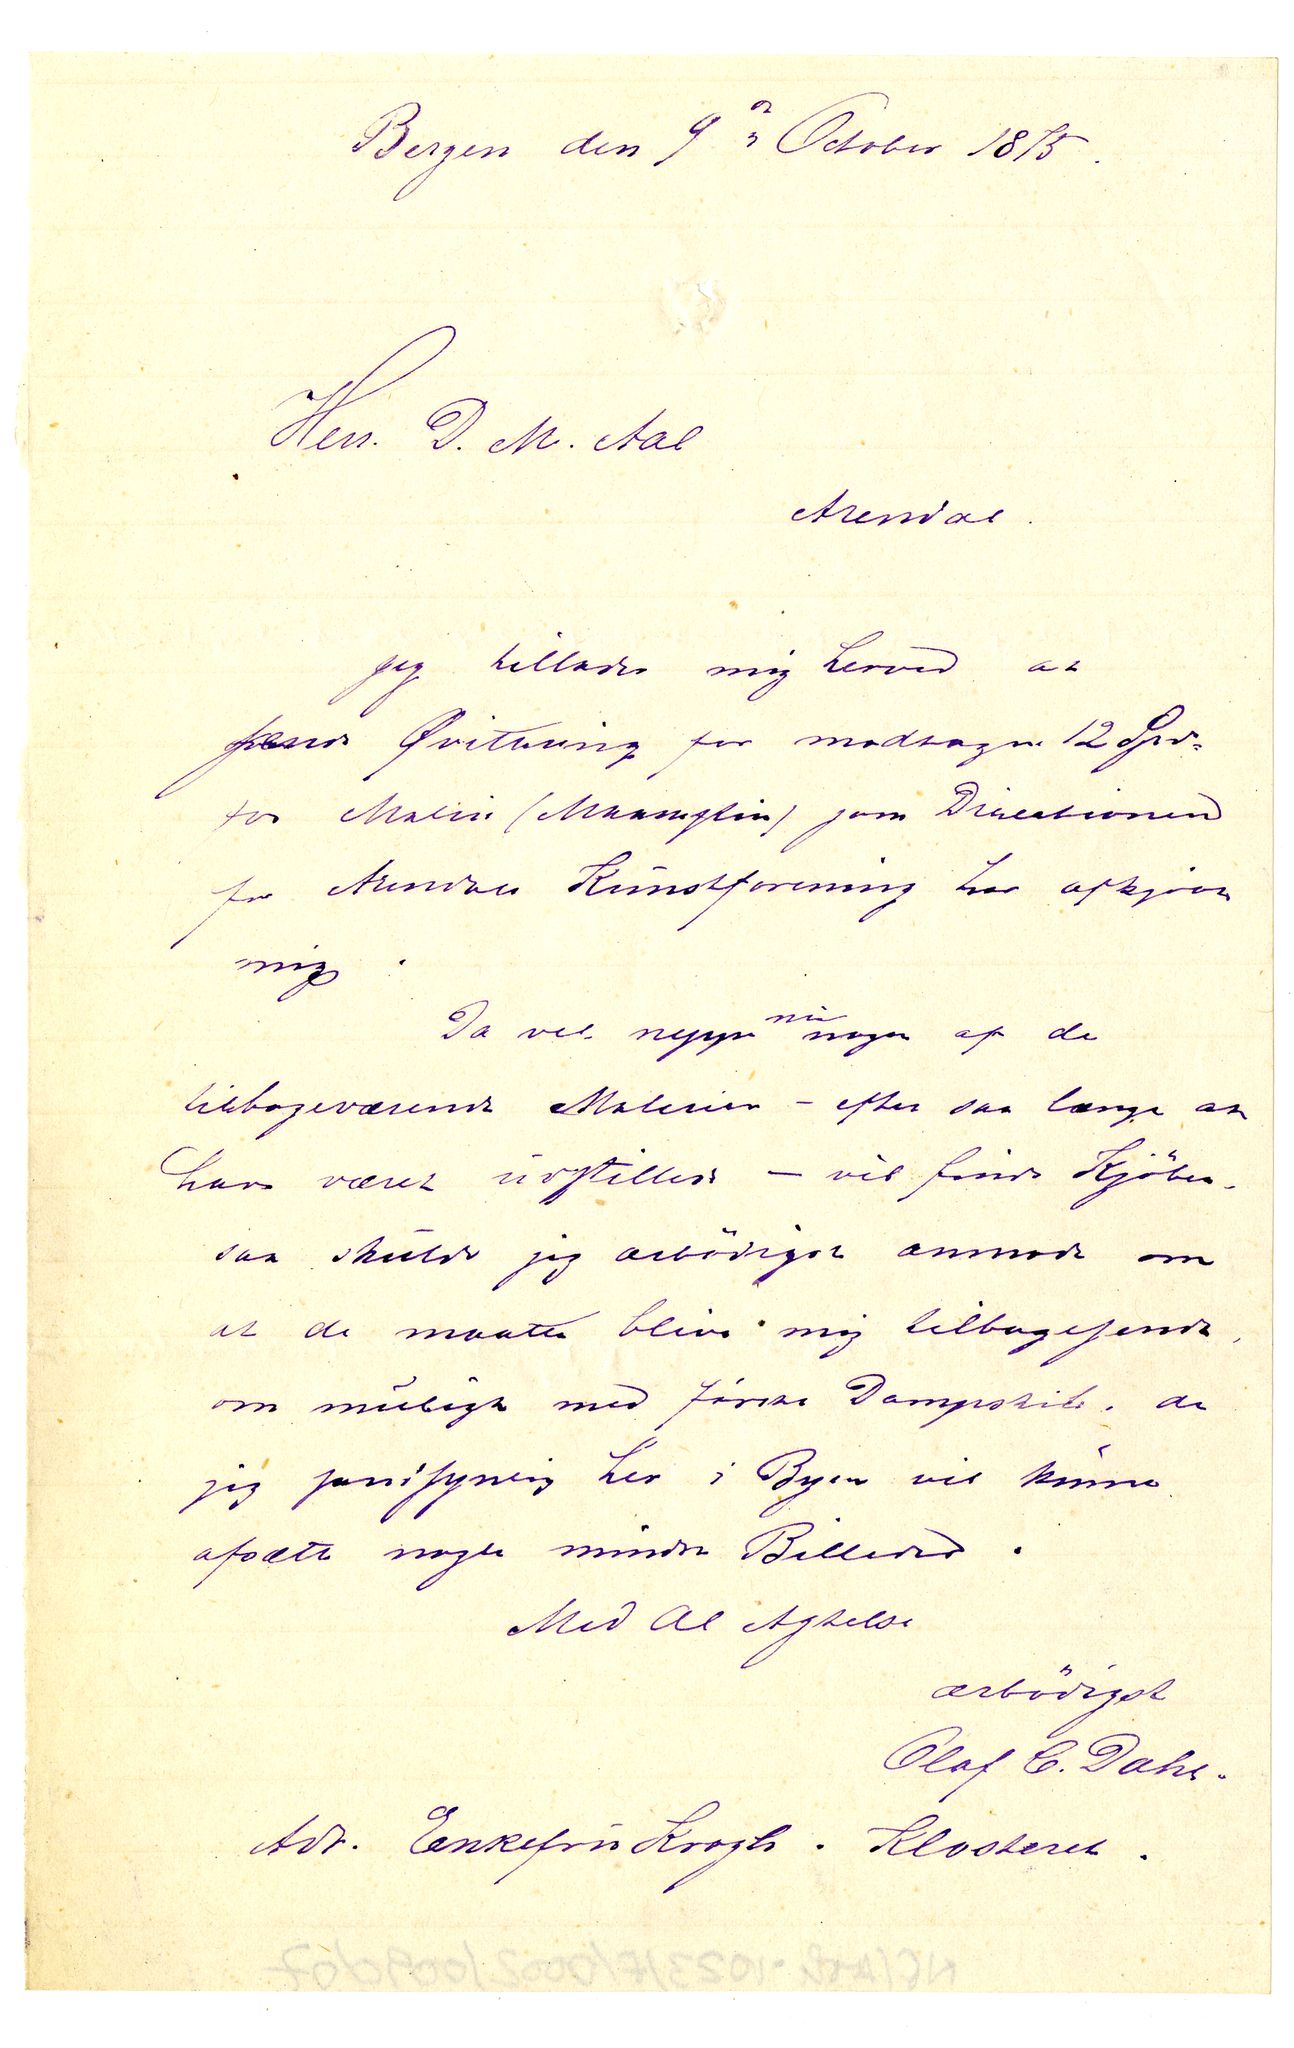 Bergen den 9de October 1875.
Herr. D. M. Aal
Arendal.
Jeg tillader mig herved at
sende Qvittering for modtagne 12 Spd.
for Maleri (Maaneskin) som Directionen
for Arendals Kunstforening har afkjøbt
mig.
Da vel neppe nu nogen af de
tilbageværende Malerier - efter saa længe at
have været udstillede - vil finde Kjöber.
saa skulde jeg ærbödigst anmode om
at de maatte blive mig tilbagesendt,
om muligt med förste Dampskib. da
jeg sandsynlig her i Byen vil kunne
afsætte nogle mindre Billeder.
Med Al Agtelse
ærbödigst
Olaf C. Dahl.
Adr. Enkefru Krogh. Klosteret.
NE/Ark-1023/F/0002/0090/07